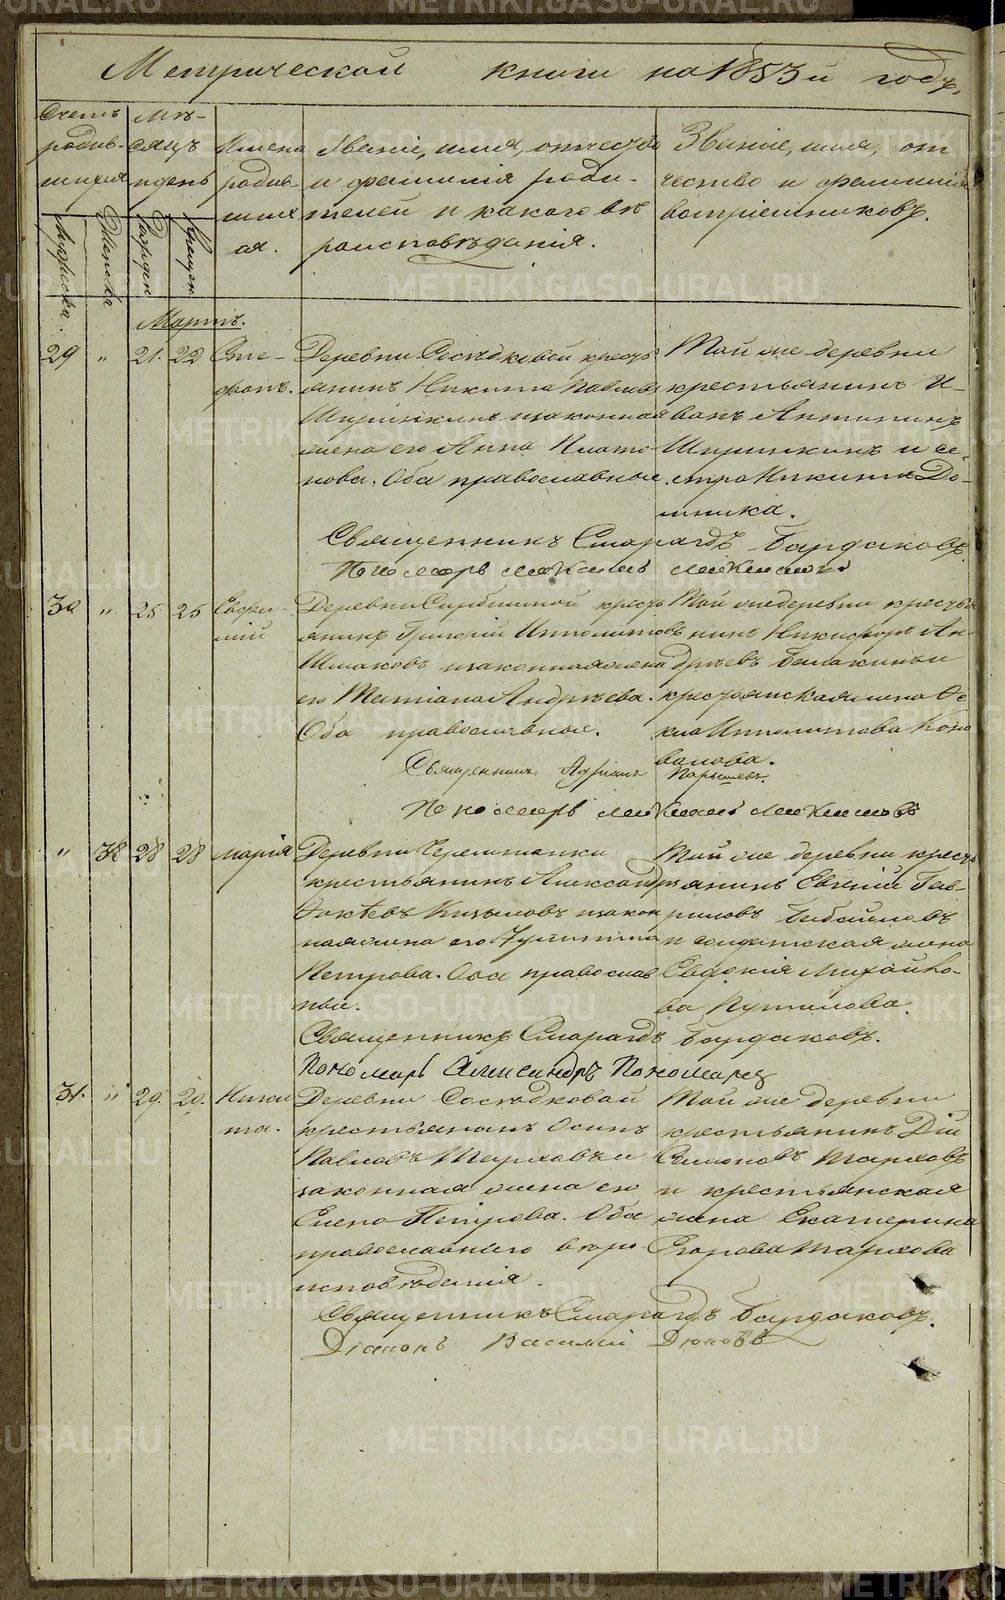 Метрической книги на 1853й годъ.
Счетъ родив-шихся
Мѣ-сяцъ и день
Имена родив-шихся.
Званіе, имя, отчество и фамилія роди-телей и какого вѣ-роисповѣданія.
Званіе, имя, от-чество и фамилія воспріемниковъ.
Мужеска
Женска
Рожден
Крещен
Мартъ.
29 " 21. 22 Сте-фанъ.
Деревни Сосѣдковой кресть-
янинъ Никита Павловъ
Ширинкинъ и законная
жена его Анна Плато-
нова. Оба православные.
Той же деревни
крестьянинъ И-
ванъ Антипинъ
Ширинкинъ и се-
стра Никиты До-
мника.
Священникъ Смарагдъ Бардаковъ.
Пономарь
30 " 25 25 Евфи-мій
Деревни крестъ
янинъ Григорій Ипполитовъ
Шмаковъ и законная жена
его Татіана Андреева.
Оба православные.
Той же деревни крестья
нинъ Никифоръ Ан-
дреевъ и
крестьянская жена Ѳе
кла Ипполитова Коно
валова.
Священникъ Адріанъ
Пономарь
" 32 28 28 Марія
Деревни Черемшанки
крестьянинъ Александръ
и закон
ная жена его Іулитта
Петрова. Оба православ
ные.
Той же деревни кресть
янинъ Евгеній Гав-
риловъ
и солдатская жена
Евдокія Михайло-
ва Путилова.
Священникъ Смарагдъ Бардаковъ.
Пономарь Александръ Пономарев
31. " 29. 29. Ники-та.
Деревни Сосѣдковой
крестьянинъ Осипъ
Павловъ Тарховъ и
законная жена его
Елена Петрова. Оба
православнаго вѣро
исповѣданія.
Той же деревни
крестьянинъ Дій
Симоновъ Тарховъ
и крестьянская
жена Екатерина
Егорова Тархова
Священникъ Смарагдъ Бардаковъ.
Діаконъ Василій Дюковъ
METRIKI.GASO-URAL.RU